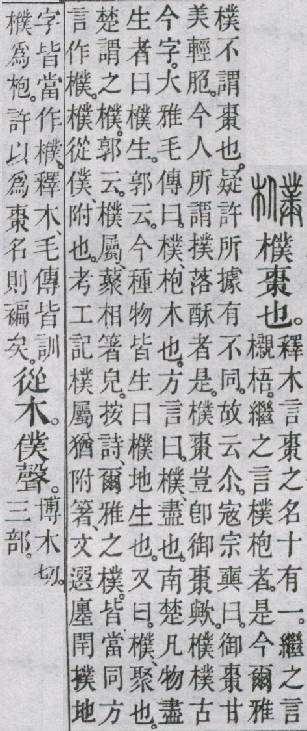 㯷棗也。
釋木言棗之名十有一。繼之言
櫬梧。繼之言樸枹者。是今爾雅
樸不謂棗也。疑許所據有不同。故云尒。寇宗奭曰。御棗甘
美輕脃。今人所謂撲落酥者是。㯷棗豈卽御棗歟。㯷樸古
今字。大雅毛傳曰。樸、枹木也。方言曰。㯷、盡也。南楚凡物盡
生者曰㯷生。郭云。今種物皆生曰㯷地生也。又曰。㯷、聚也。
楚謂之㯷。郭云。㯷屬、藂相箸皃。按詩、爾雅之樸。皆當同方
言作㯷。㯷從僕、附也。考工記樸屬猶附箸、文選廛閈撲地
字皆當作㯷。釋木、毛傳皆訓
㯷爲枹。許以爲棗名則褊矣。
從木。僕聲。
博木切。
三部。